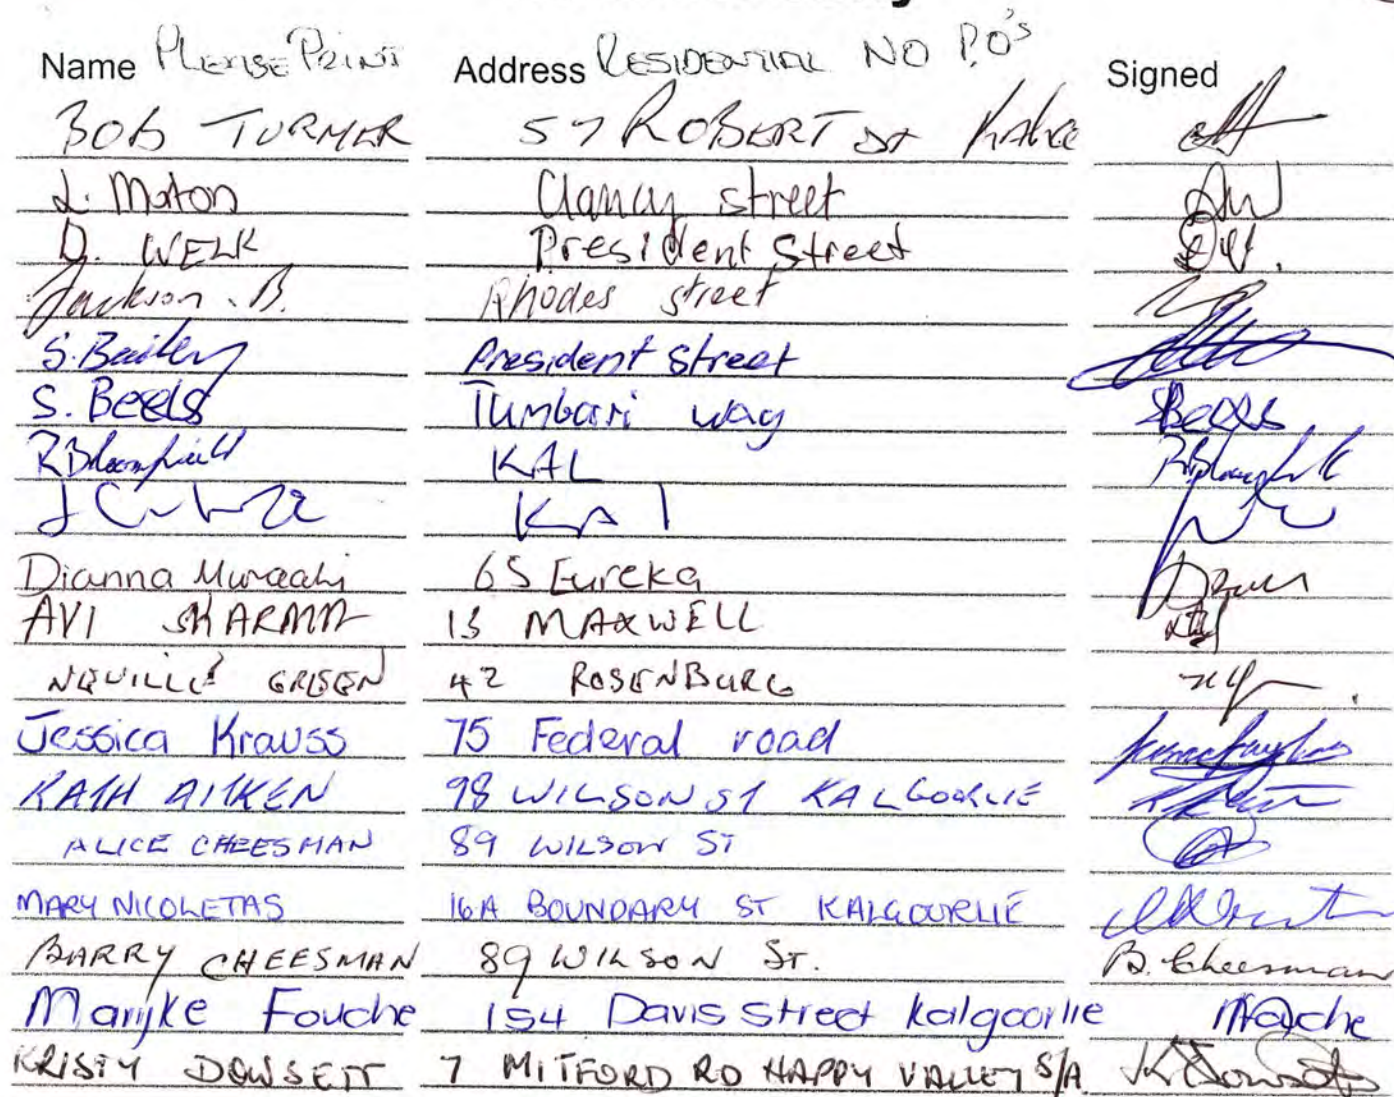 Name Please Print Address Residential NO P.O's Signed
BOB TURNER 57 ROBERT St Kalg
L. Maton Clancy street
D. WELK President Street D.W.
Jackson. B. Rhodes street
S. Bailey President Street
S. Beels Tumbari way SBeels
R Bloomfield KAL R Bloomfield
J KAL
Dianna 65 Eureka
AVI SHARMA 13 MAXWELL
NEVILLE GREEN 42 ROSENBURG
Jessica Krauss 75 Federal road
KATH AITKEN 98 WILSON ST KALGOORLIE
ALICE CHEESMAN 89 WILSON ST
MARY NICOLETAS 16A BOUNDARY ST KALGOORLIE
BARRY CHEESMAN 89 WILSON ST. B. Cheesman
Marijke Fouche 154 Davis Street Kalgoorlie Mfouche
KRISTY DOWSETT 7 MITFORD RD HAPPY VALLEY S/A K Dowsett